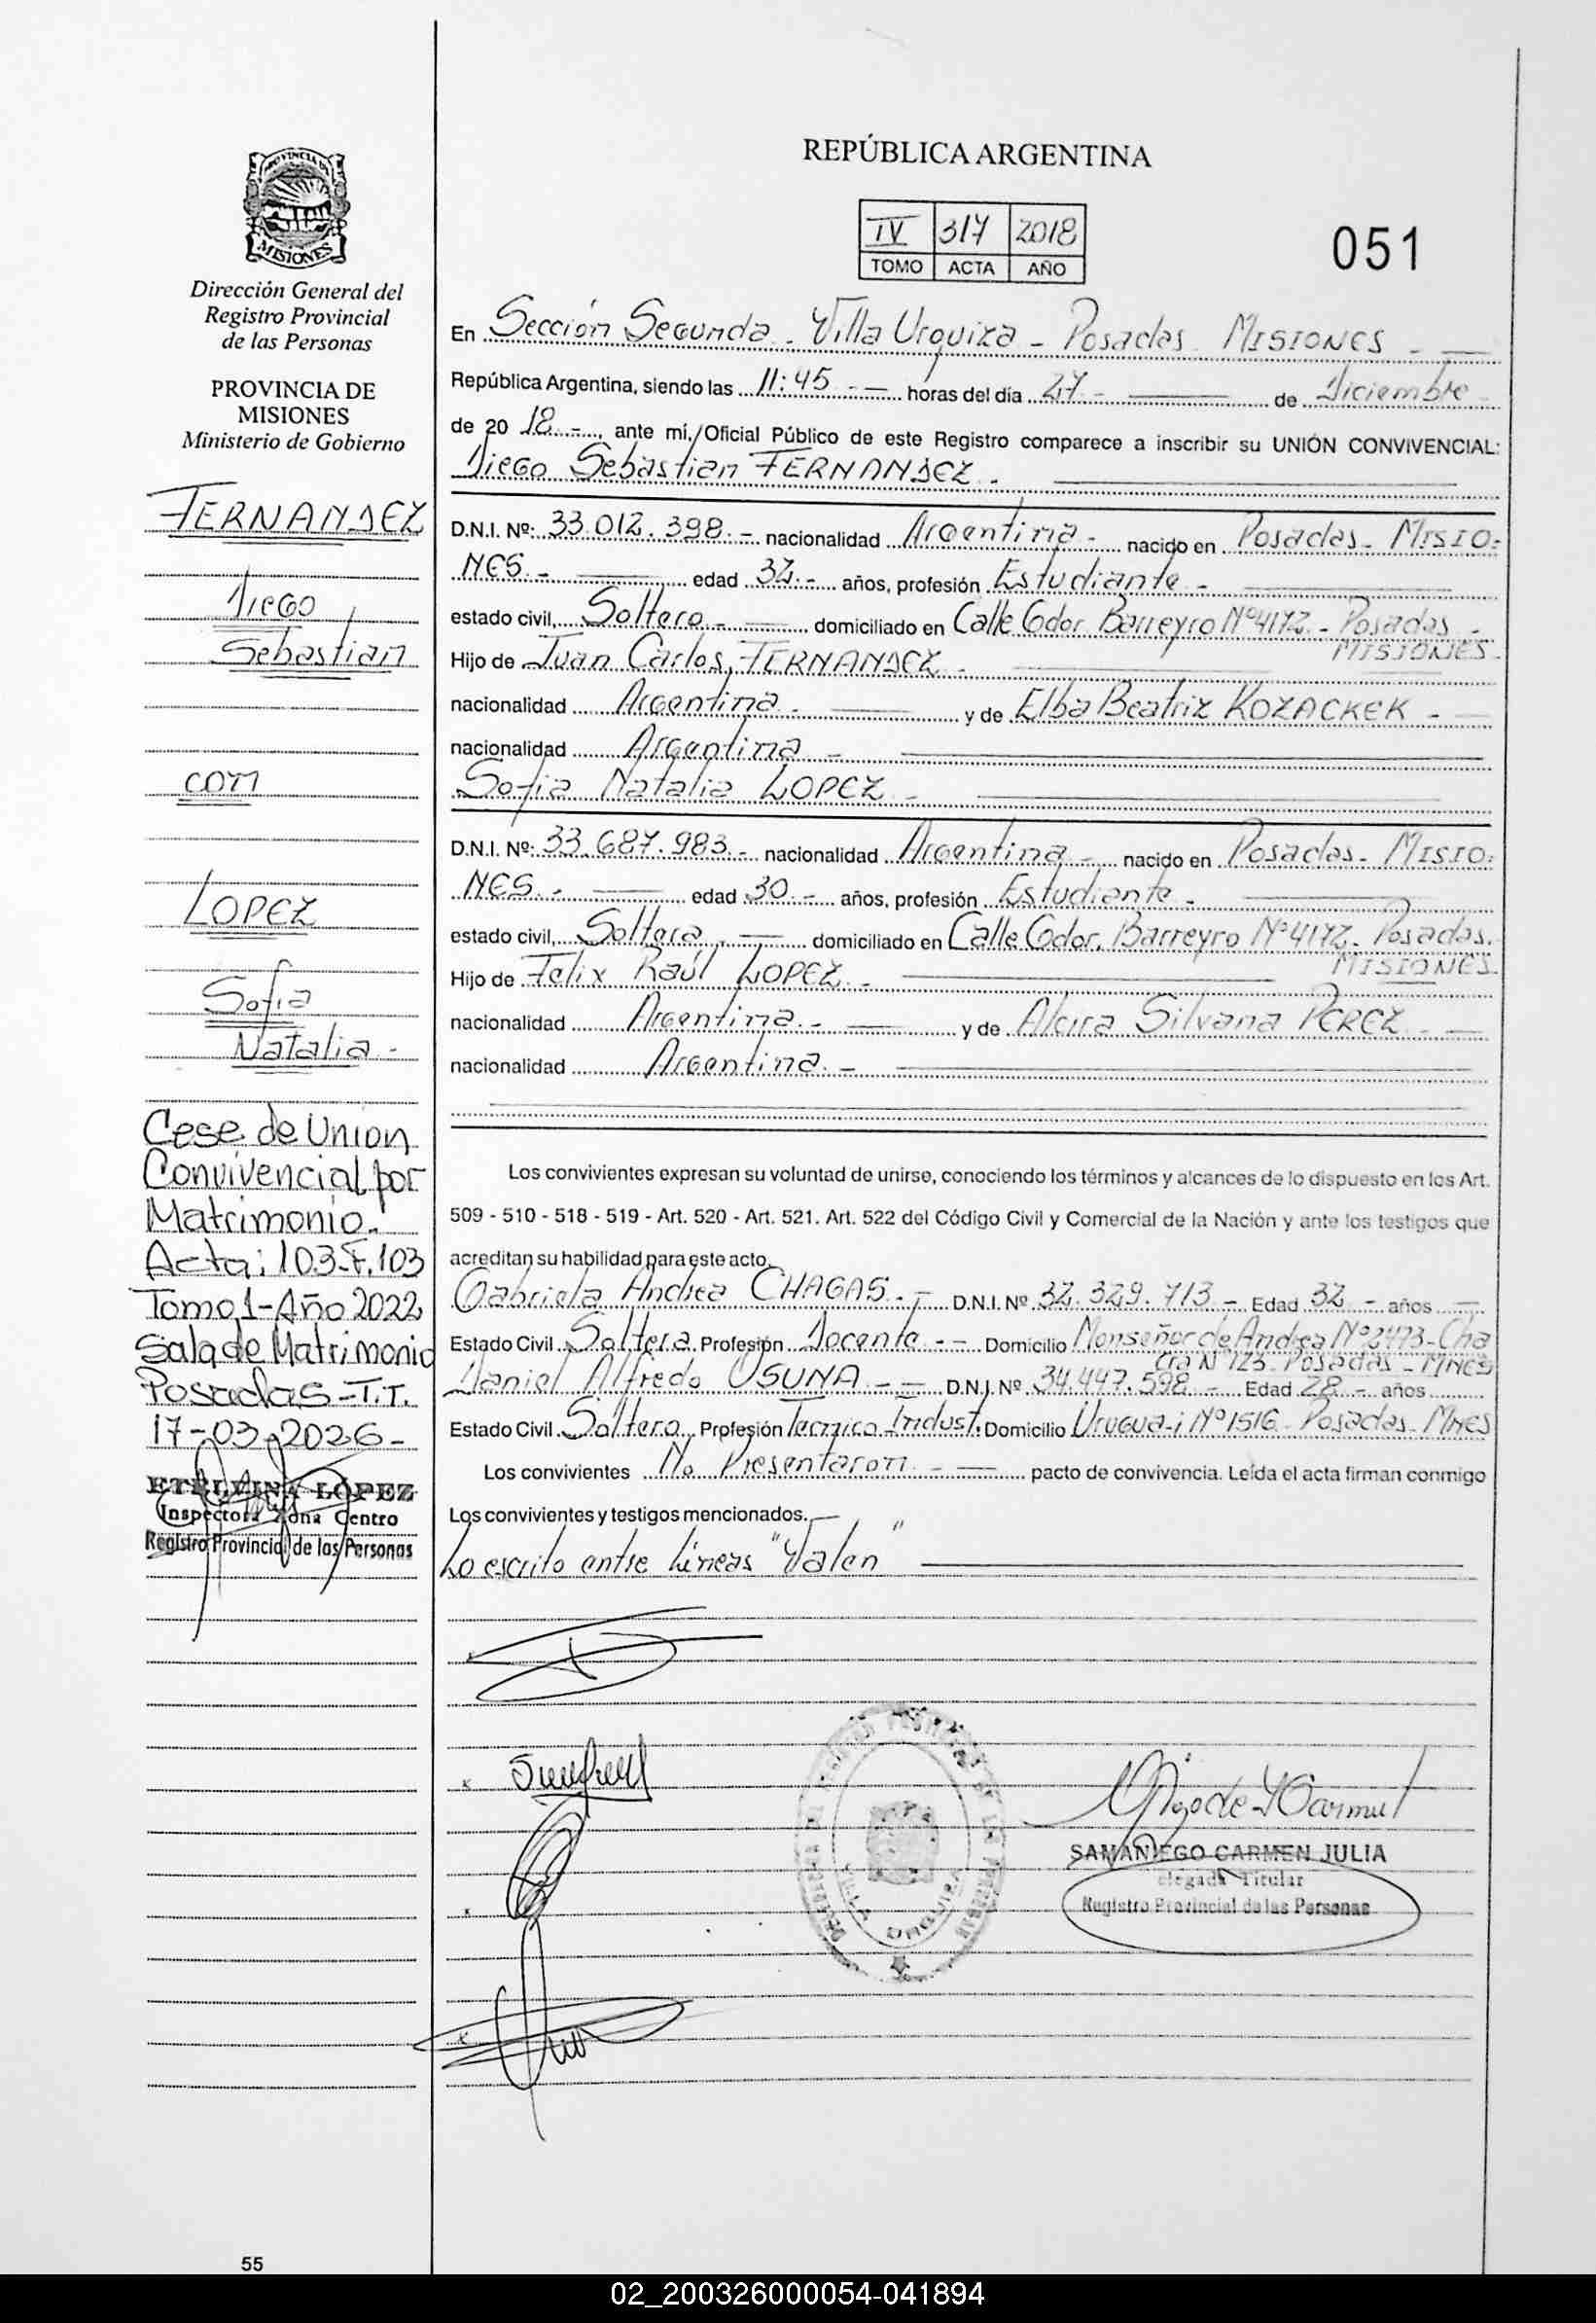 PROVINCIA DE
MISIONES
Dirección General del
Registro Provincial
de las Personas
PROVINCIA DE
MISIONES
Ministerio de Gobierno
FERNANDEZ
Diego
Sebastian
con
LOPEZ
Sofia
Natalia -
Cese de Union
Convivencial por
Matrimonio.
Acta: 103-F.103
Tomo 1-Año 2022
Sala de Matrimonio
Posadas-T.T.
17-03-2026-
ETELVINA LÓPEZ
Inspectora Zona Centro
Registro Provincial de las Personas
55
REPÚBLICA ARGENTINA
IV 317 2018
TOMO ACTA AÑO
051
En Sección Segunda - Villa Urquiza - Posadas MISIONES -
República Argentina, siendo las 11:45 - horas del día 27 - de Diciembre -
de 20 18 -, ante mí, Oficial Público de este Registro comparece a inscribir su UNIÓN CONVIVENCIAL:
Diego Sebastian FERNANDEZ -
D.N.I. Nº: 33.012.398.- nacionalidad Argentina - nacido en Posadas - MISIO-
NES.- edad 32.- años, profesión Estudiante -
estado civil, Soltero - domiciliado en Calle Gdor. Barreyro Nº4172 - Posadas -
MISIONES-
Hijo de Juan Carlos FERNANDEZ -
nacionalidad Argentina - y de Elba Beatriz KOZACKEK -
nacionalidad Argentina -
Sofia Natalia LOPEZ -
D.N.I. Nº: 33.687.983.- nacionalidad Argentina - nacido en Posadas - MISIO-
NES.- edad 30.- años, profesión Estudiante -
estado civil, Soltera - domiciliado en Calle Gdor. Barreyro Nº4172 - Posadas.
MISIONES-
Hijo de Felix Raúl LOPEZ -
nacionalidad Argentina.- y de Alcira Silvana PEREZ -
nacionalidad Argentina.-
Los convivientes expresan su voluntad de unirse, conociendo los términos y alcances de lo dispuesto en los Art.
509 - 510 - 518 - 519 - Art. 520 - Art. 521. Art. 522 del Código Civil y Comercial de la Nación y ante los testigos que
acreditan su habilidad para este acto.
Gabriela Andrea CHAGAS.- D.N.I. Nº 32.329.713 - Edad 32 - años -
Estado Civil Soltera Profesión Docente - Domicilio Monseñor de Andrea Nº2473-Cha
cra Nº 123 - Posadas - MNES
Daniel Alfredo OSUNA - D.N.I. Nº 34.447.598 - Edad 28 - años
Estado Civil Soltero Profesión Tecnico Indust. Domicilio Urugua-i Nº1516 - Posadas - MNES
Los convivientes No Presentaron - pacto de convivencia. Leída el acta firman conmigo
Los convivientes y testigos mencionados.
Lo escrito entre lineas "Valen"
VILLA URQUIZA
SAMANIEGO CARMEN JULIA
Delegada Titular
Registro Provincial de las Personas
02_200326000054-041894